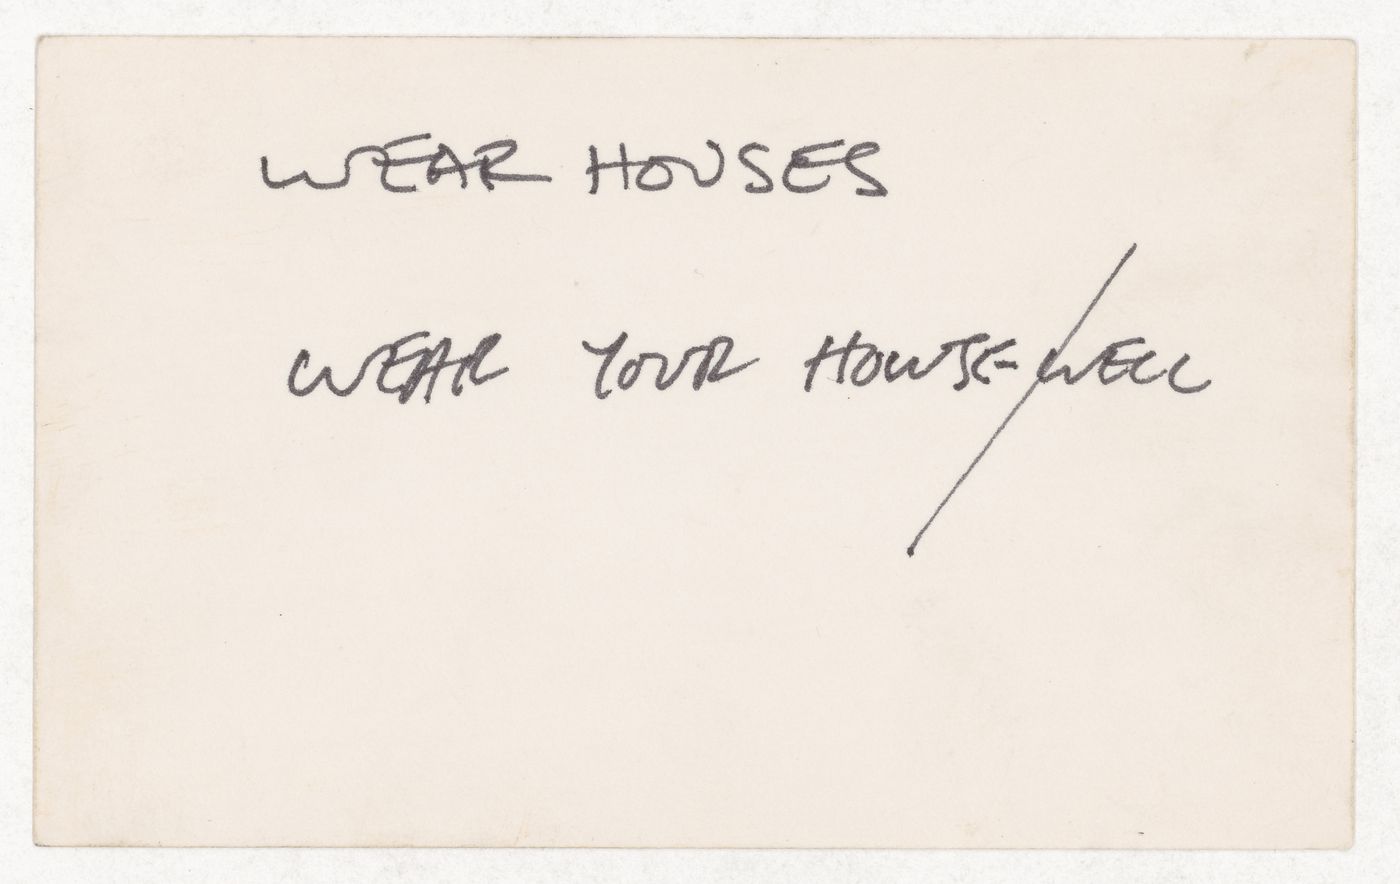 WEAR HOUSES
WEAR YOUR HOUSE/WELL